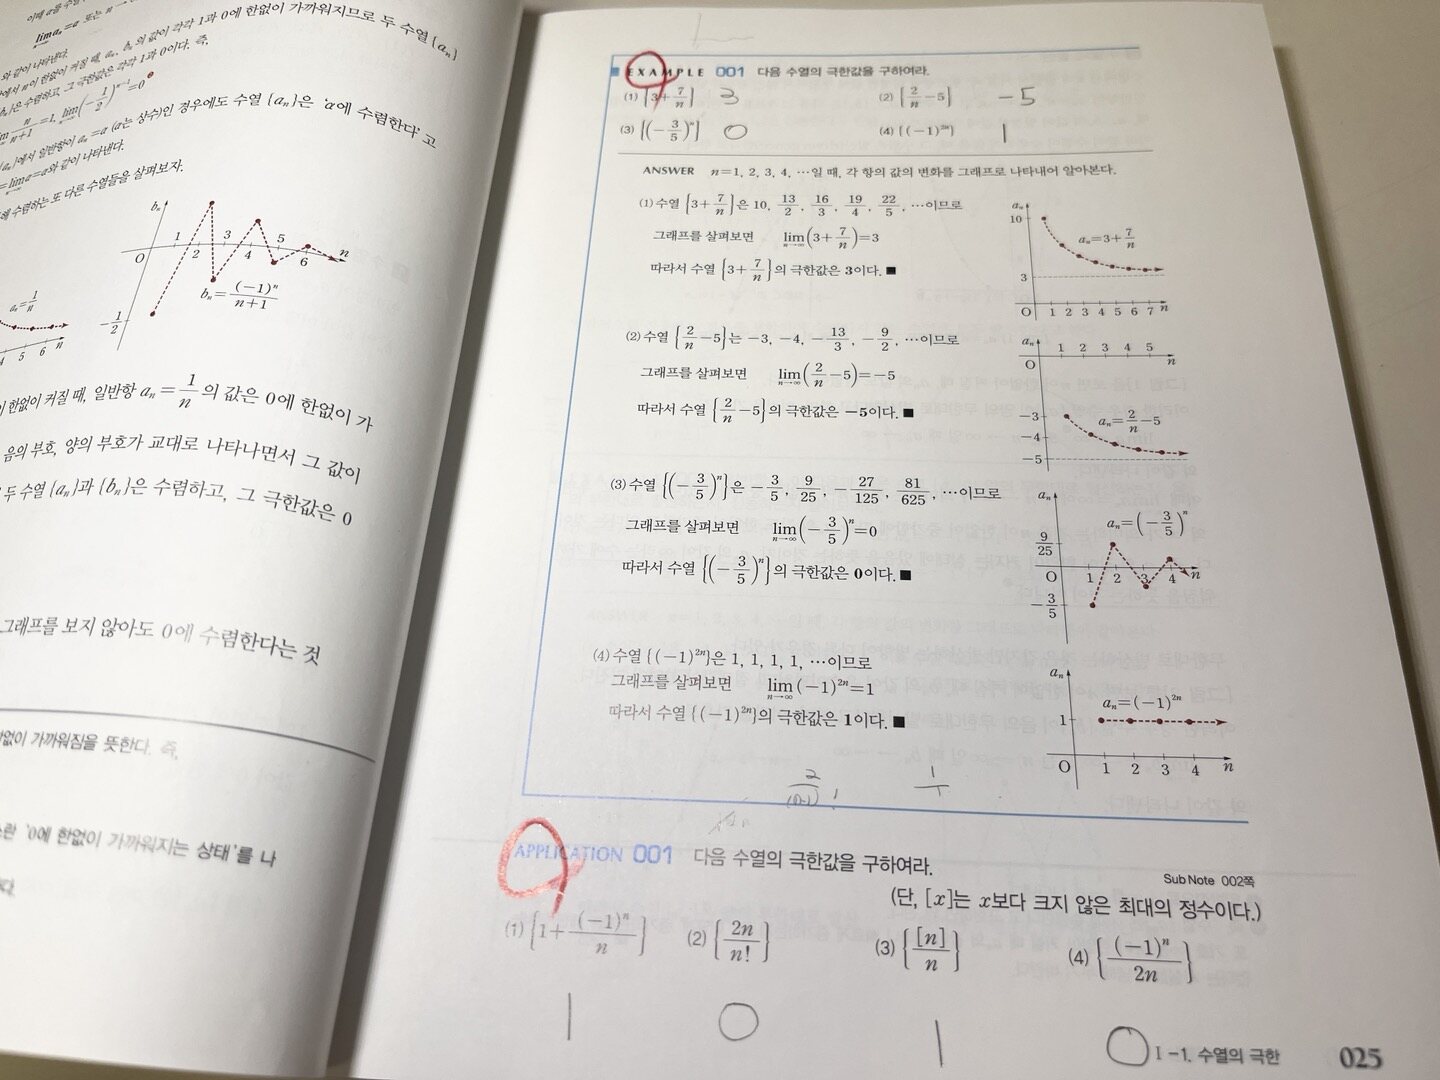 이때 α를 수열
lim aₙ=α 또는 n→
와 같이 나타낸다.
에서 n이 한없이 커질 때, aₙ, bₙ의 값이 각각 1과 0에 한없이 가까워지므로 두 수열 {aₙ}
bₙ}은 수렴하고, 그 극한값은 각각 1과 0이다. 즉,
n/(n+1)=1, lim(-1/2)ⁿ⁻¹=0
{aₙ}에서 일반항이 aₙ=α (α는 상수)인 경우에도 수열 {aₙ}은 'α에 수렴한다'고
=lim α=α와 같이 나타낸다.
수렴하는 또 다른 수열들을 살펴보자.
bₙ
1 3 5 n
O 2 4 6
bₙ=(-1)ⁿ/(n+1)
-1/2
aₙ=1/n
4 5 6 n
이 한없이 커질 때, 일반항 aₙ=1/n의 값은 0에 한없이 가
음의 부호, 양의 부호가 교대로 나타나면서 그 값이
두 수열 {aₙ}과 {bₙ}은 수렴하고, 그 극한값은 0
그래프를 보지 않아도 0에 수렴한다는 것
한없이 가까워짐을 뜻한다. 즉,
란 '0에 한없이 가까워지는 상태'를 나
다.
EXAMPLE 001 다음 수열의 극한값을 구하여라.
(1) {3+7/n} 3 (2) {2/n-5} -5
(3) {(-3/5)ⁿ} 0 (4) {(-1)²ⁿ} 1
ANSWER n=1, 2, 3, 4, …일 때, 각 항의 값의 변화를 그래프로 나타내어 알아본다.
(1) 수열 {3+7/n}은 10, 13/2, 16/3, 19/4, 22/5, …이므로
그래프를 살펴보면 lim n→∞ (3+7/n)=3
따라서 수열 {3+7/n}의 극한값은 3이다. ■
aₙ
10
aₙ=3+7/n
3
O 1 2 3 4 5 6 7 n
(2) 수열 {2/n-5}는 -3, -4, -13/3, -9/2, …이므로
그래프를 살펴보면 lim n→∞ (2/n-5)=-5
따라서 수열 {2/n-5}의 극한값은 -5이다. ■
aₙ
1 2 3 4 5
O n
-3
aₙ=2/n-5
-4
-5
(3) 수열 {(-3/5)ⁿ}은 -3/5, 9/25, -27/125, 81/625, …이므로
그래프를 살펴보면 lim n→∞ (-3/5)ⁿ=0
따라서 수열 {(-3/5)ⁿ}의 극한값은 0이다. ■
aₙ
aₙ=(-3/5)ⁿ
9/25
O 1 2 3 4 n
-3/5
(4) 수열 {(-1)²ⁿ}은 1, 1, 1, 1, …이므로
그래프를 살펴보면 lim n→∞ (-1)²ⁿ=1
따라서 수열 {(-1)²ⁿ}의 극한값은 1이다. ■
aₙ
aₙ=(-1)²ⁿ
1
O 1 2 3 4 n
2/(n-1)! 1/1
APPLICATION 001 다음 수열의 극한값을 구하여라.
Sub Note 002쪽
(단, [x]는 x보다 크지 않은 최대의 정수이다.)
(1) {1+(-1)ⁿ/n} (2) {2n/n!} (3) {[n]/n} (4) {(-1)ⁿ/2n}
1 0 1 0
Ⅰ-1. 수열의 극한 025